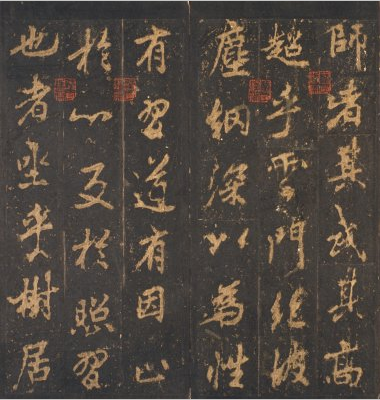 師者其或其高
超乎雲門絕彼
塵網深以為性
有習道有因止
於心反於照習
也者坐乎樹居